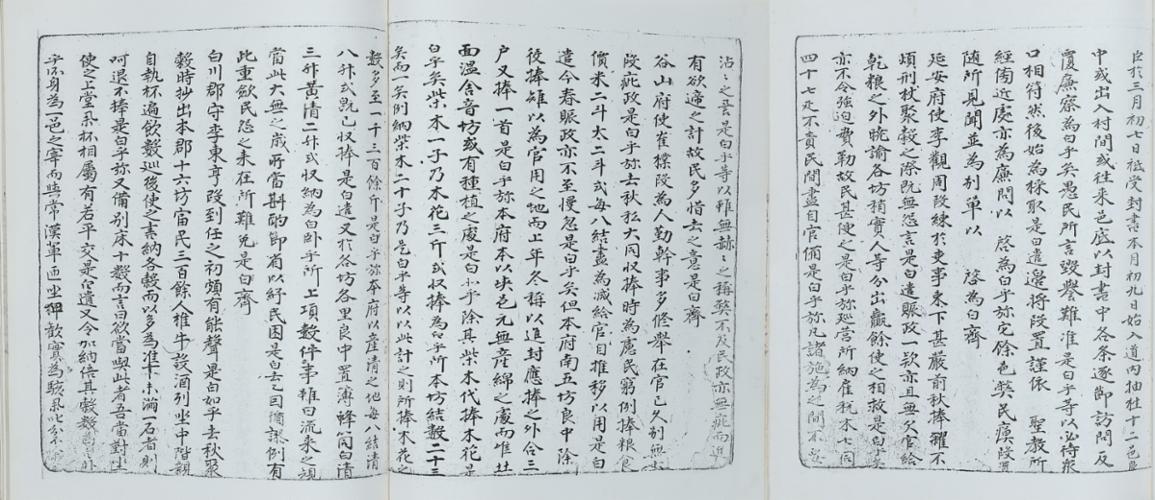 臣於三月初七日祗受封書本月初九日始入道內抽栍十二邑
中或出入村閭或往來邑底以封書中各条逐節訪問反
覆廉察爲白乎矣愚民所言毀譽難准是白乎等以必待衆
口相符然後始爲採取是白遣邊將段置謹依 聖教所
經衙近處亦爲廉問以 啓爲白乎旀定餘邑獘民瘼段置
隨所見聞並爲別單以 啓爲白齊
延安府使李觀周段練於吏事束下甚嚴前秋捧糴不
煩刑杖聚穀之際旣無怨言是白遣賑政一款亦且無欠官給
乾粮之外曉諭各坊稍實人等分出贏餘使之相救是白乎矣
亦不令強迫費勒故民甚便之是白乎旀巡營所納雇税木七同
四十七疋不責民間盡自官備是白乎旀凡諸施爲之間不
沾〻之云是白乎等以雖無赫〻之稱獘不及民政亦無疵而近
有欲遞之計故民多惜去之意是白齊
谷山府使崔段爲人勤幹事多修擧在官已久別無
段疵政是白乎旀去秋租大同収捧時爲慮民窮例捧粮良
價米二斗太二斗式每八結盡爲減給官自推移以用是白
遣今春賑政亦不至慢忽是白乎矣但本府南五坊良中除
役捧雉以爲官用之地而上年冬稱以進封應捧之外合三
户又捧一首是白乎旀本府本以峽邑元無産綿之處而唯吐
面温舍音坊或有種植之處是白乎除其柴木代捧木花是
白乎矣柴木一子乃木花三斤式収捧爲白乎所本坊結數二十三
矣而一矣例納柴木二十子乃是白乎等以以此計之則所捧木花之
數多至一千三百餘斤是白乎旀本府以産清之地每八結清
八升式既已収捧是白遣又於各坊各里良中置簿蜂筒白清
三升黃清二升式収納爲白卧乎所上項數件事雖曰流來之規
當此大無之歲所當斟酌節省以紓民困是白去乙因循謬例有
此重斂民怨之来在所難免是白齊
白川郡守李東亨段到任之初頗有能聲是白如乎去秋聚
穀時抄出本郡十六坊富民三百餘人椎牛設酒列坐中階親
自執杯遍飲數巡後使之書納各穀而以多爲准未滿石者則
呵退不捧是白乎旀又備別床十數而言曰欲當與此者吾當對坐
使之上堂系杯相屬有若平交是白遣又令加納倍其穀數
乎所身爲一邑之宰而與常漢輩匝坐狎歡實爲駭